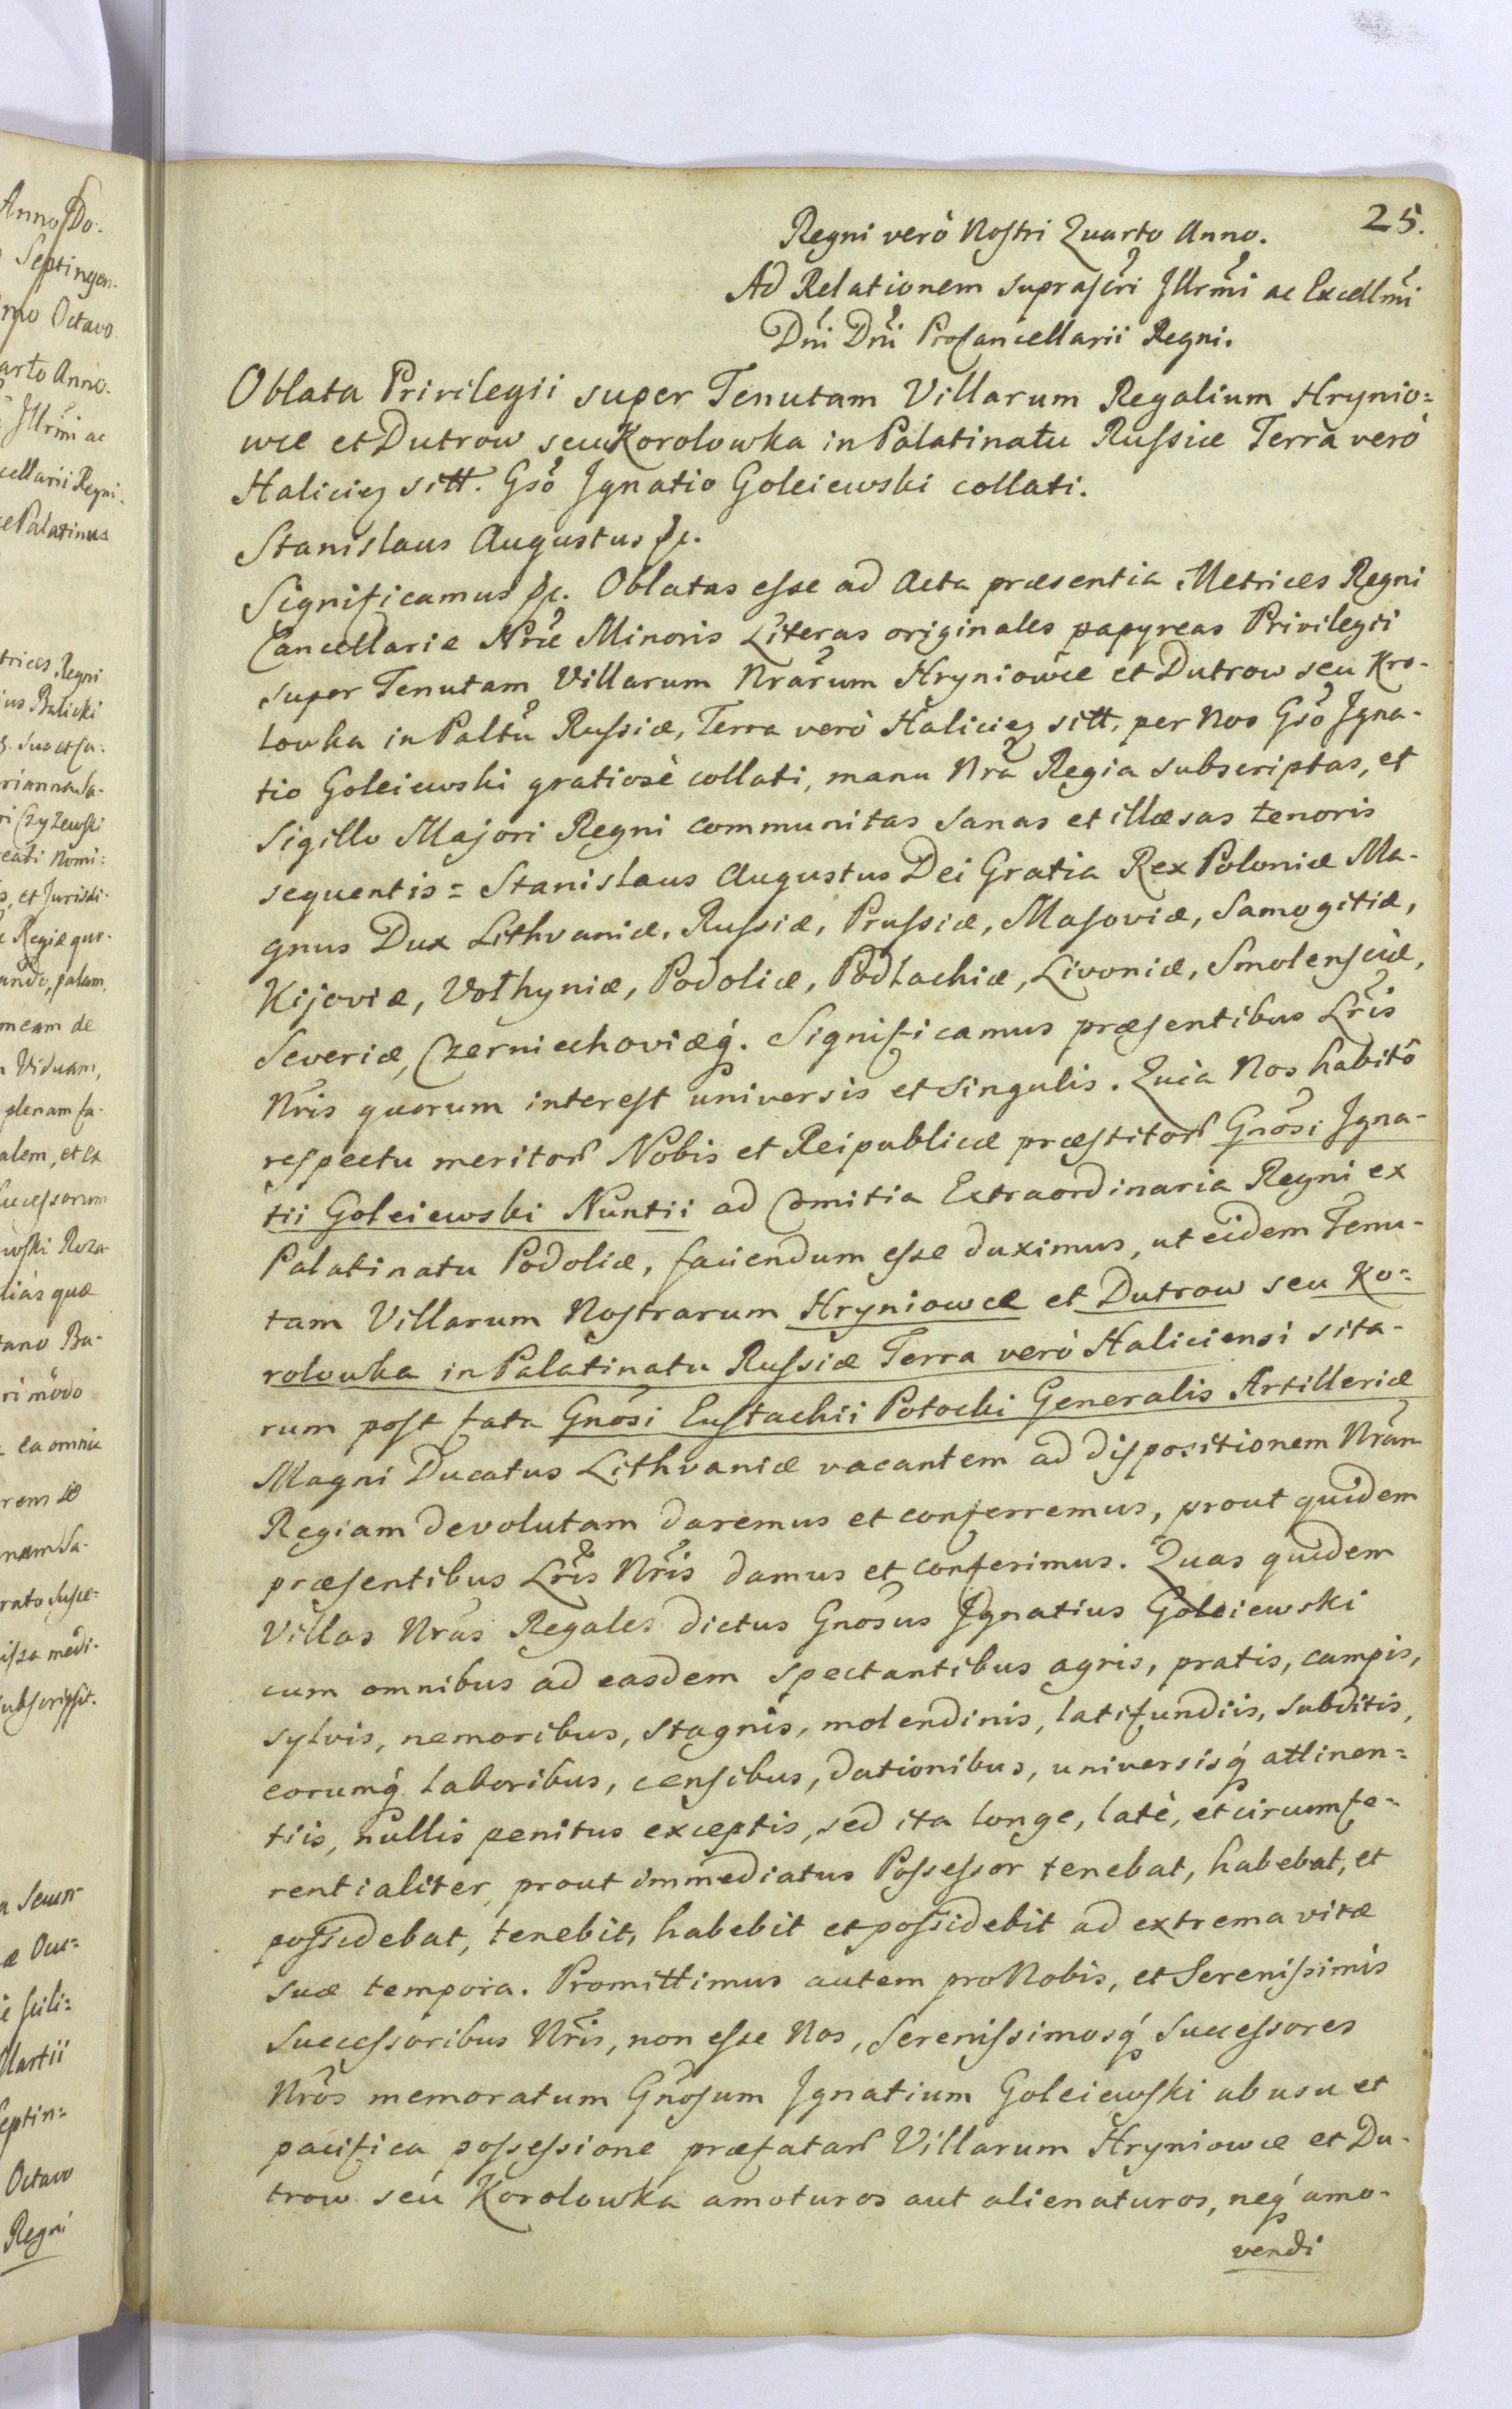 25.
Regni verò Nostri Quarto Anno.
Ad Relationem suprascri Illrmi ac Excellmi
Dni Dni ProCancellarii Regni.
Oblata Privilegii super Tenutam Villarum Regalium Hrynio=
wce et Dutrow seu Korolowka in Palatinatu Russiæ Terra verò
Halicien sitt. Gso Ignatio Goleiewski collati.
Stanislaus Augustus &c.
Significamus &c. Oblatas esse ad Acta præsentia Metrices Regni
Cancellariæ Nræ Minoris Literas originales papyreas Privilegii
super Tenutam Villarum Nrarum Hryniowce et Dutrow seu Kro-
lowka in Paltu Russiæ, Terra verò Halicien sitt. per Nos Gso Igna-
tio Goleiewski gratiosè collati, manu Nra Regia subscriptas, et
Sigillo Majori Regni communitas sanas et illæsas tenoris
sequentis = Stanislaus Augustus Dei Gratia Rex Poloniæ Ma-
gnus Dux Lithvaniæ, Russiæ, Prussiæ, Masoviæ, Samogitiæ,
Kijoviæ, Volhyniæ, Podoliæ, Podlachiæ, Livoniæ, Smolensciæ,
Severiæ, Czerniechoviæq. Significamus præsentibus Lris
Nris quorum interest universis et singulis. Quia Nos habito
respectu meritor Nobis et Reipublicæ præstitor Gnosi Igna-
tii Goleiewski Nuntii ad Comitia Extraordinaria Regni ex
Palatinatu Podoliæ, faciendum esse duximus, ut eidem Tenu-
tam Villarum Nostrarum Hryniowce et Dutrow seu Ko=
rolowka in Palatinatu Russiæ Terra verò Haliciensi sita-
rum post fata Gnosi Eustachii Potocki Generalis Artilleriæ
Magni Ducatus Lithvaniæ vacantem ad dispositionem Nram
Regiam devolutam daremus et conferremus, prout quidem
præsentibus Lris Nris damus et conferimus. Quas quidem
Villas Nras Regales dictus Gnosus Ignatius Goleiewski
cum omnibus ad easdem spectantibus agris, pratis, campis,
sylvis, nemoribus, stagnis, molendinis, latifundiis, subditis,
eorumq laboribus, censibus, dationibus, universisq attinen=
tiis, nullis penitus exceptis, sed ita longe, latè, et circumfe-
rentialiter, prout immediatus Possessor tenebat, habebat, et
possidebat, tenebit, habebit et possidebit ad extrema vitæ
suæ tempora. Promittimus autem pro Nobis, et Serenissimis
Successoribus Nris, non esse Nos, Serenissimosq Successores
Nros memoratum Gnosum Ignatium Goleiewski ab usu et
pacifica possessione præfatar Villarum Hryniowce et Du-
trow seu Korolowka amoturos aut alienaturos, neq amo-
vendi